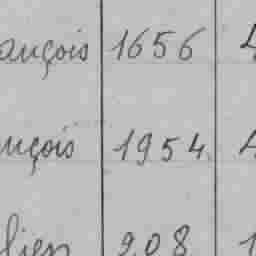 ançois 1656 4
nçois 1954. 4
lien 908 1